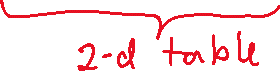 2-d table